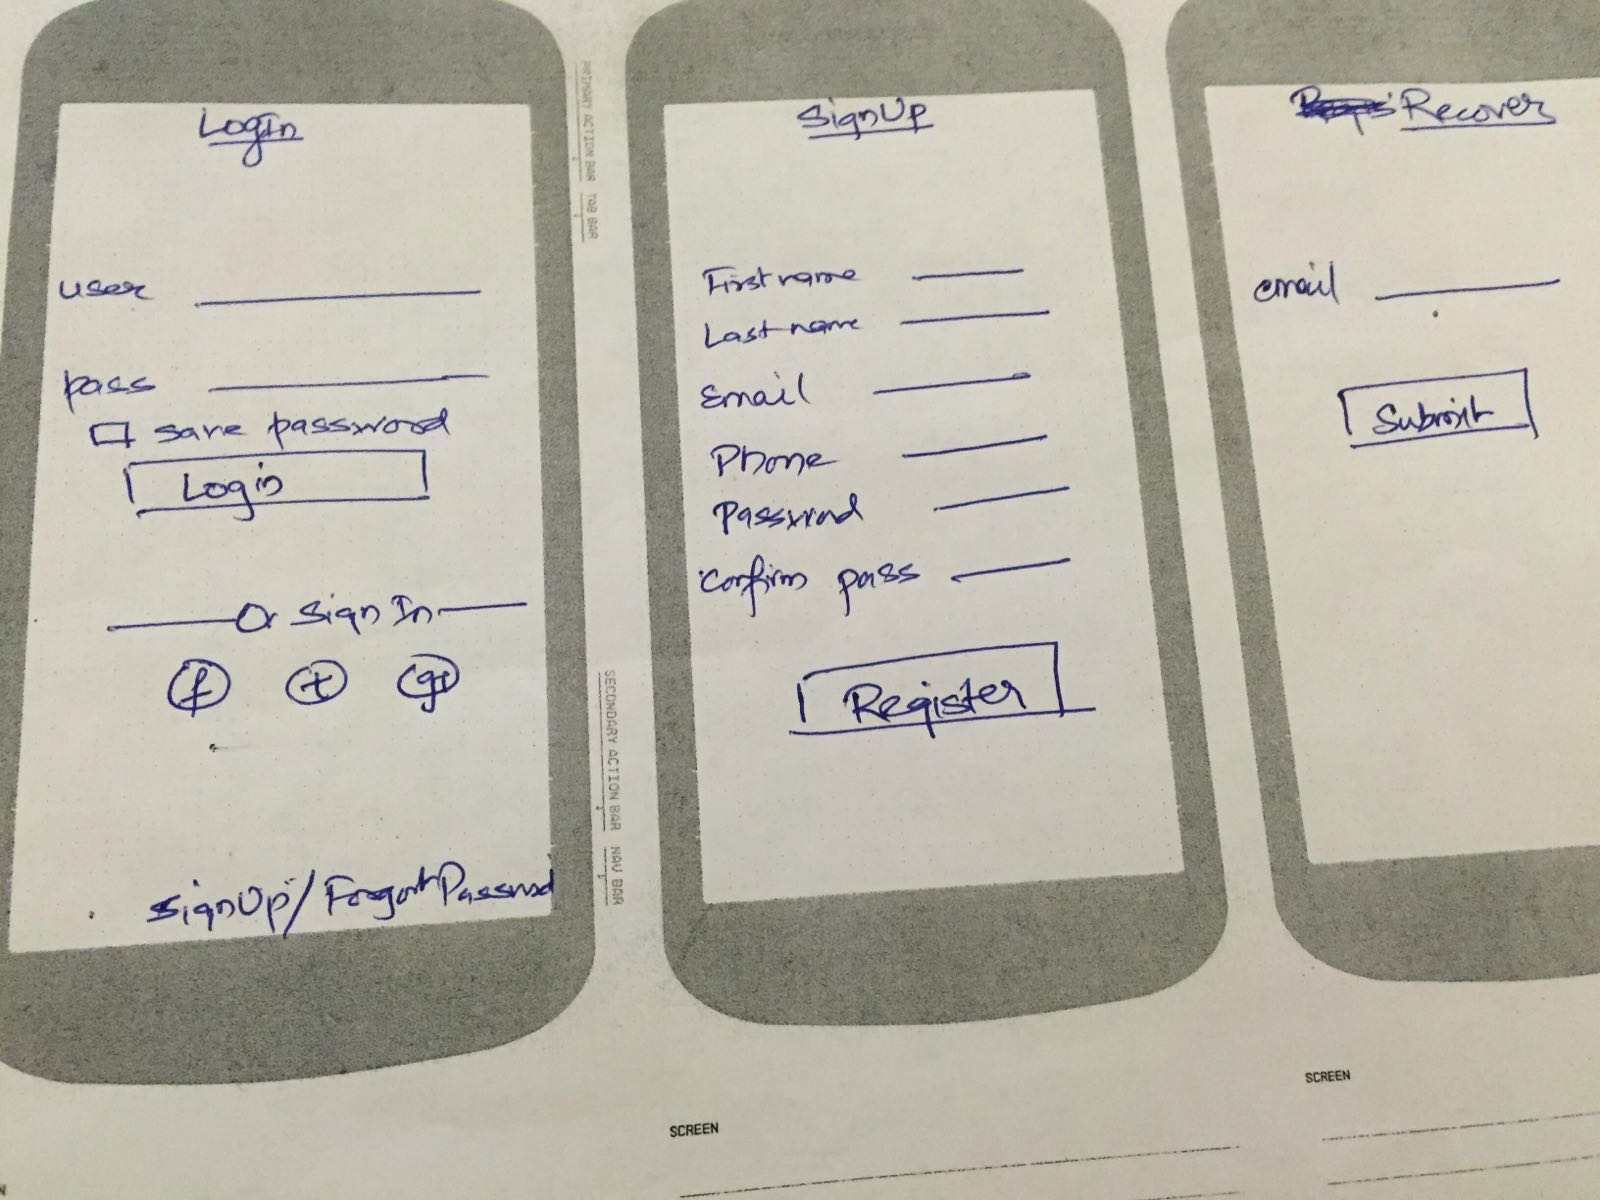 Login
user
pass
save password
Login
Or Sign In
f t g+
SignUp/Forgot Password
PRIMARY ACTION BAR TAB BAR
SECONDARY ACTION BAR NAV BAR
SignUp
First name
Last name
Email
Phone
Password
Confirm pass
Register
SCREEN
Recover
email
Submit
SCREEN